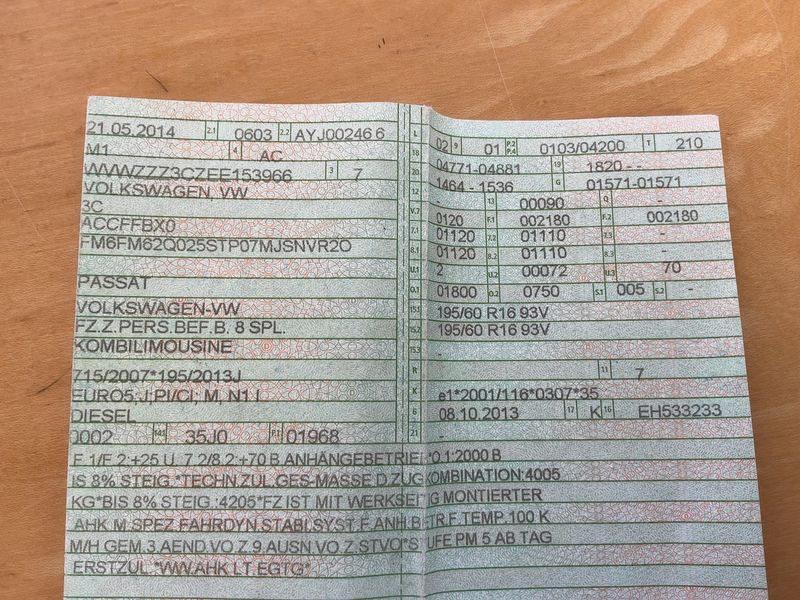 21.05.2014 2.1 0603 2.2 AYJ00246 6
M1 4 AC
WVWZZZ3CZEE153966 3 7
VOLKSWAGEN, VW
3C
ACCFFBX0
FM6FM62Q025STP07MJSNVR2O
PASSAT
VOLKSWAGEN-VW
FZ.Z.PERS.BEF.B. 8 SPL.
KOMBILIMOUSINE
715/2007*195/2013J
EURO5;J;PI/CI; M, N1 I
DIESEL
0002 35J0 P.1 01968
L 02 9 01 P.2 P.4 0103/04200 T 210
18 04771-04881 19 1820 - -
20 1464 - 1536 G 01571-01571
12 - 13 00090 Q -
V.7 0120 F.1 002180 F.2 002180
7.1 01120 7.2 01110 7.3 -
8.1 01120 8.2 01110 8.3 -
U.1 2 U.2 00072 U.3 70
O.1 01800 O.2 0750 S.1 005 S.2 -
15.1 195/60 R16 93V
15.2 195/60 R16 93V
15.3 -
R - 11 7
K e1*2001/116*0307*35
6 08.10.2013 17 K 16 EH533233
21 -
F.1/F.2:+25 U. 7.2/8.2:+70 B.ANHÄNGEBETRIEB*O.1:2000 B
IS 8% STEIG.*TECHN.ZUL.GES-MASSE D.ZUGKOMBINATION:4005
KG*BIS 8% STEIG.:4205*FZ IST MIT WERKSEITIG MONTIERTER
AHK M.SPEZ.FAHRDYN.STABI.SYST.F.ANH.BETR.F.TEMP.100 K
M/H GEM.3.AEND.VO.Z.9.AUSN.VO.Z.STVO*STUFE PM 5 AB TAG
ERSTZUL.*WW.AHK LT.EGTG*